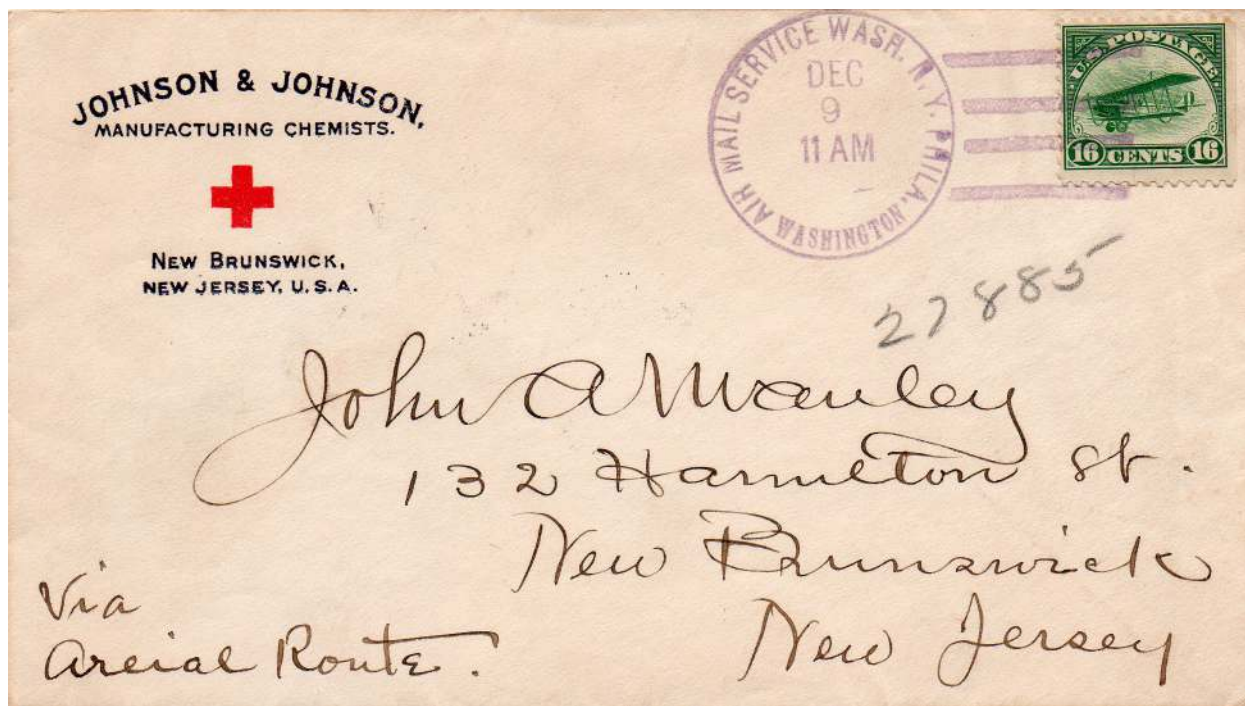 JOHNSON & JOHNSON,
MANUFACTURING CHEMISTS.
NEW BRUNSWICK,
NEW JERSEY, U.S.A.
AIR MAIL SERVICE WASH. N.Y. PHILA.
DEC
9
11 AM
WASHINGTON
U.S. POSTAGE
16 CENTS 16
27885
John A Manley
132 Hamilton St.
New Brunswick
New Jersey
Via
Areial Route.